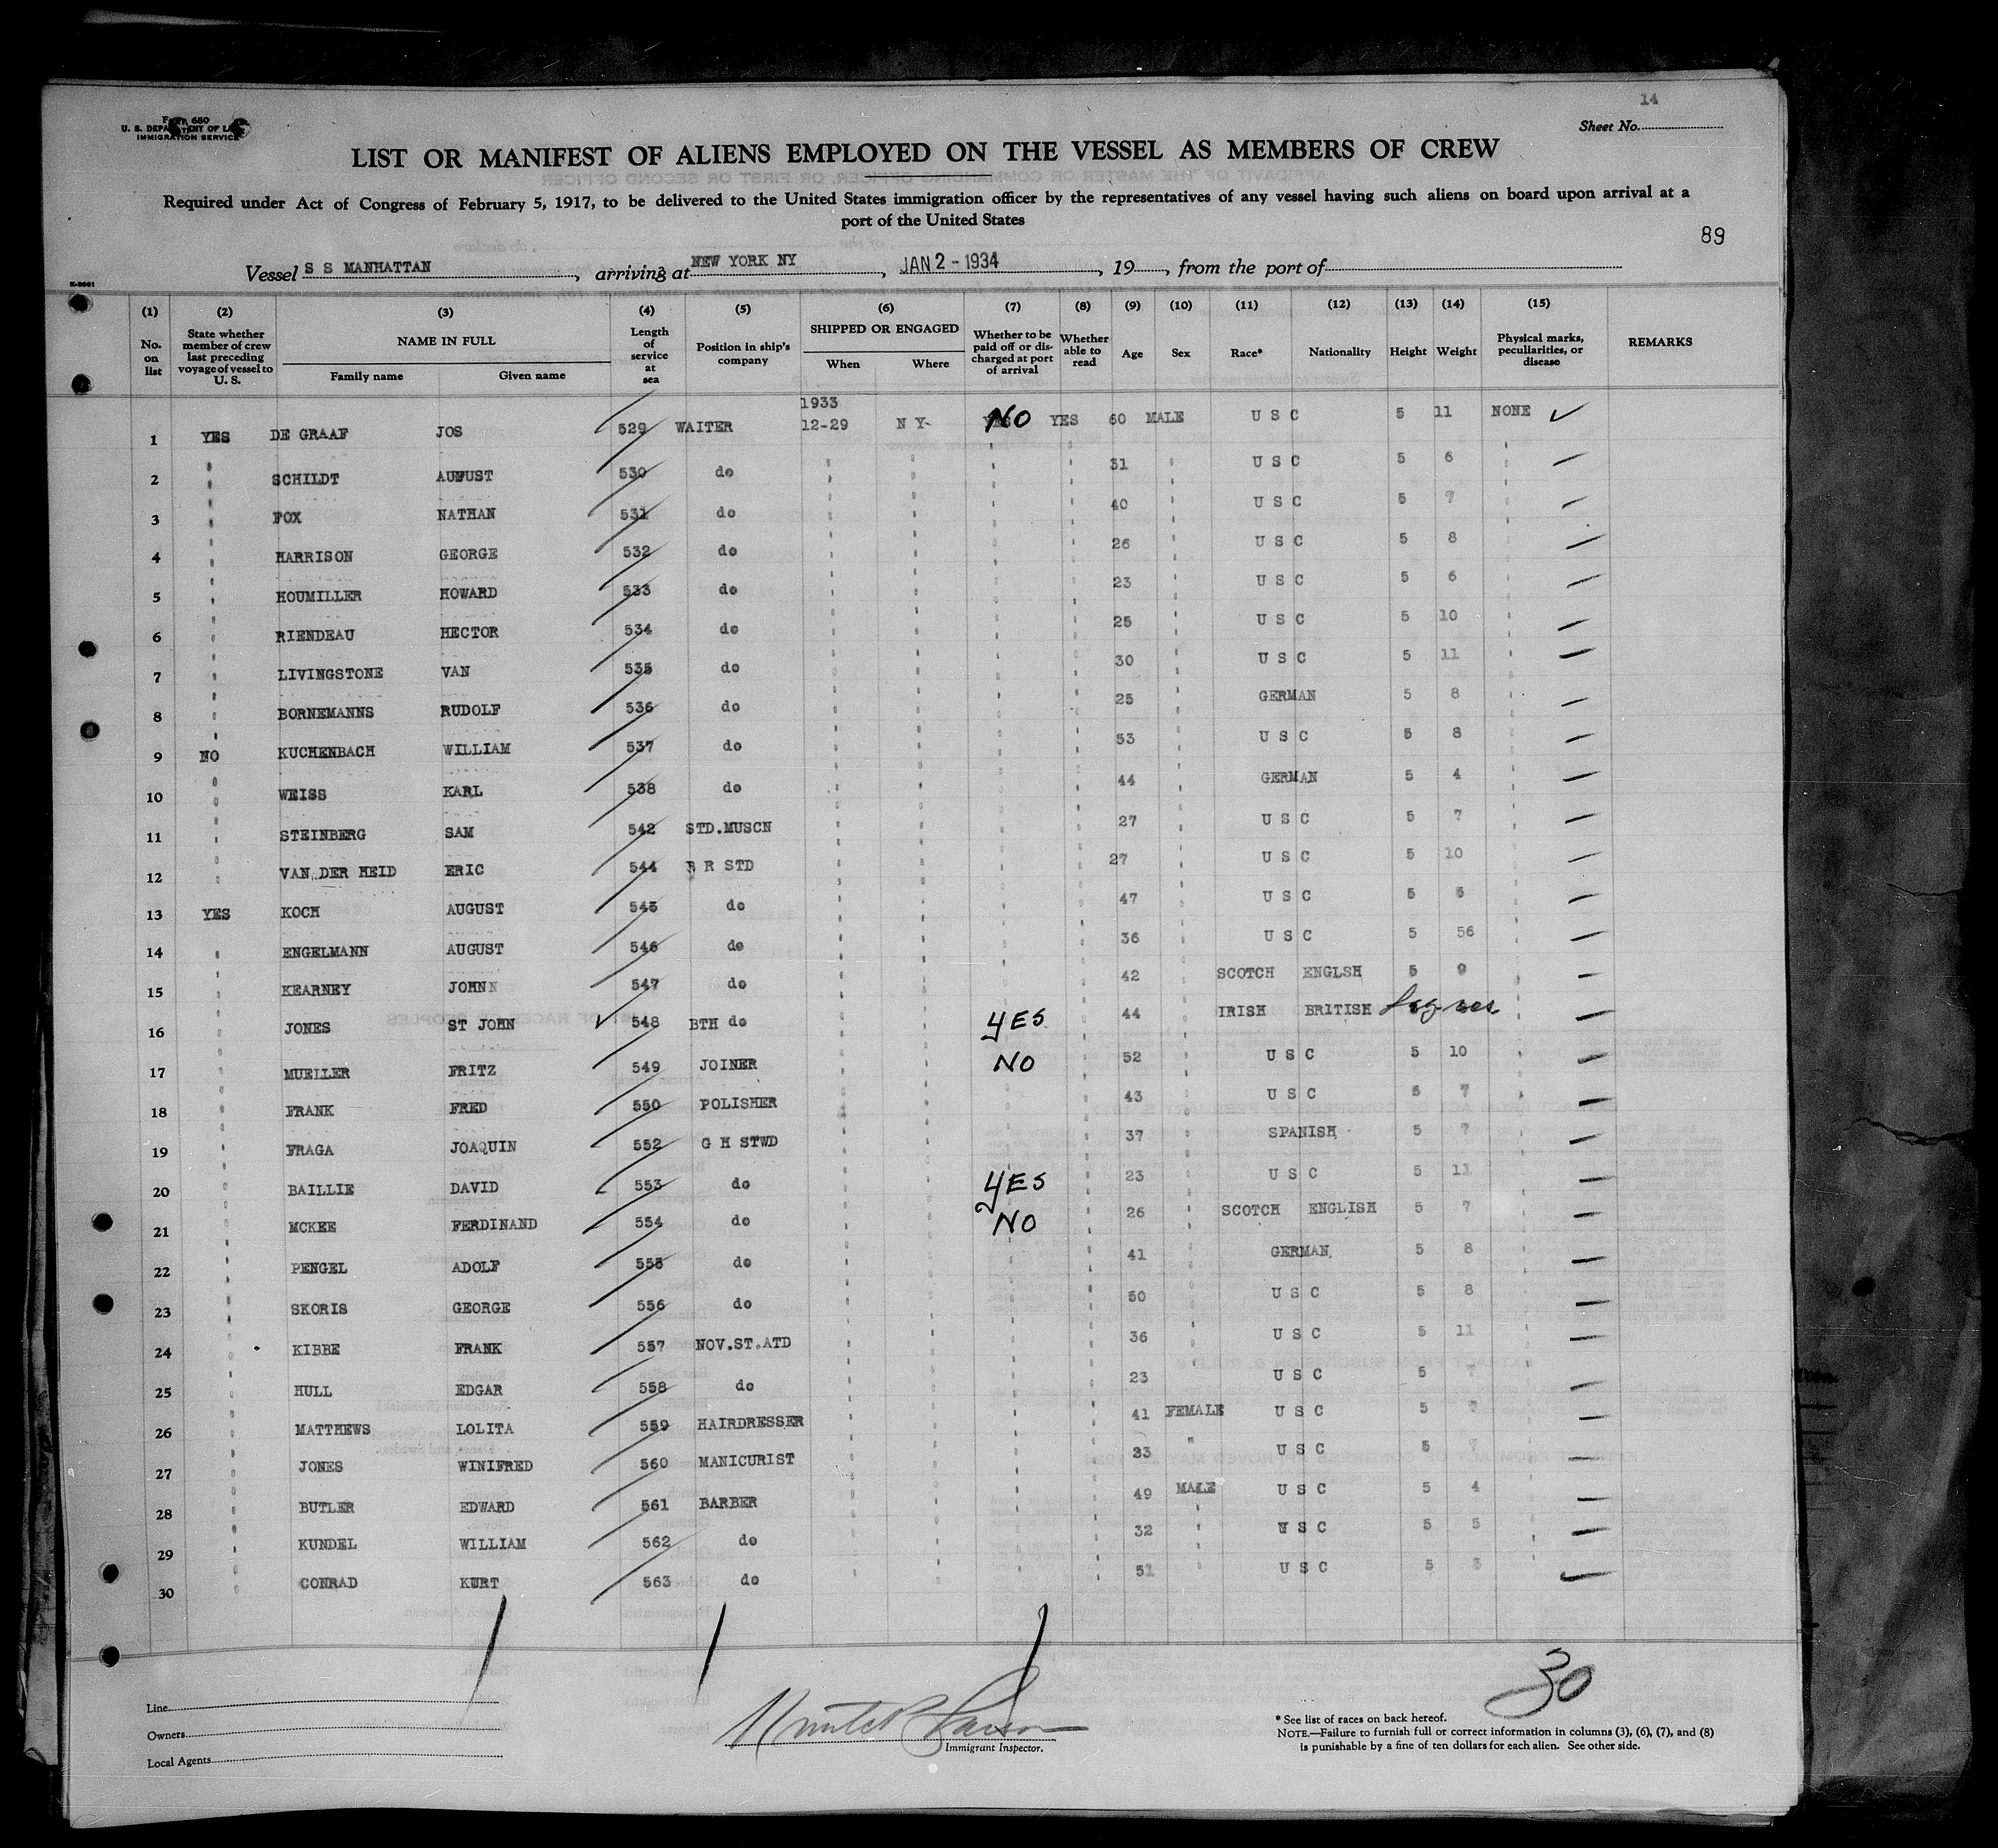 14
Form 680
U. S. DEPARTMENT OF LABOR
IMMIGRATION SERVICE
Sheet No.
LIST OR MANIFEST OF ALIENS EMPLOYED ON THE VESSEL AS MEMBERS OF CREW
Required under Act of Congress of February 5, 1917, to be delivered to the United States immigration officer by the representatives of any vessel having such aliens on board upon arrival at a
port of the United States
89
Vessel S S MANHATTAN, arriving at NEW YORK NY, JAN 2 - 1934, 19, from the port of
(1) (2) (3) (4) (5) (6) (7) (8) (9) (10) (11) (12) (13) (14) (15)
No. on list
State whether member of crew last preceding voyage of vessel to U. S.
NAME IN FULL
Family name Given name
Length of service at sea
Position in ship's company
SHIPPED OR ENGAGED
When Where
Whether to be paid off or discharged at port of arrival
Whether able to read
Age Sex Race* Nationality Height Weight
Physical marks, peculiarities, or disease
REMARKS
1933
1 YES DE GRAAF JOS 529 WAITER 12-29 N Y NO YES 60 MALE U S C 5 11 NONE
2 " SCHILDT AUFUST 530 do " " " " 31 " U S C 5 6 "
3 " FOX NATHAN 531 do " " " " 40 " U S C 5 7 "
4 " HARRISON GEORGE 532 do " " " " 26 " U S C 5 8 "
5 " HOUMILLER HOWARD 533 do " " " " 23 " U S C 5 6 "
6 " RIENDEAU HECTOR 534 do " " " " 25 " U S C 5 10 "
7 " LIVINGSTONE VAN 535 do " " " " 30 " U S C 5 11 "
8 " BORNEMANNS RUDOLF 536 do " " " " 25 " GERMAN 5 8 "
9 NO KUCHENBACH WILLIAM 537 do " " " " 53 " U S C 5 8 "
10 " WEISS KARL 538 do " " " " 44 " GERMAN 5 4 "
11 " STEINBERG SAM 542 STD.MUSCN " " " " 27 " U S C 5 7 "
12 " VAN DER HEID ERIC 544 B R STD " " " " 27 " U S C 5 10 "
13 YES KOCH AUGUST 545 do " " " " 47 " U S C 5 "
14 " ENGELMANN AUGUST 546 do " " " " 36 " U S C 5 56 "
15 " KEARNEY JOHNN 547 do " " " " 42 " SCOTCH ENGLSH 5 9 "
16 " JONES ST JOHN 548 BTH do " " YES " 44 " IRISH BRITISH "
17 " MUELLER FRITZ 549 JOINER " " NO " 52 " U S C 5 10 "
18 " FRANK FRED 550 POLISHER " " " " 43 " U S C 7 "
19 " FRAGA JOAQUIN 552 G H STWD " " " " 37 " SPANISH 5 7 "
20 " BAILLIE DAVID 553 do " " YES " 23 " U S C 5 11 "
21 " MCKEE FERDINAND 554 do " " NO " 26 " SCOTCH ENGLISH 5 7 "
22 " PENGEL ADOLF 555 do " " " " 41 " GERMAN 5 8 "
23 " SKORIS GEORGE 556 do " " " " 50 " U S C 5 8 "
24 " KIBBE FRANK 557 NOV.ST.ATD " " " " 36 " U S C 5 11 "
25 " HULL EDGAR 558 do " " " " 23 " U S C 5 "
26 " MATTHEWS LOLITA 559 HAIRDRESSER " " " " 41 FEMALE U S C 5 7 "
27 " JONES WINIFRED 560 MANICURIST " " " " 33 " U S C 5 7 "
28 " BUTLER EDWARD 561 BARBER " " " " 49 MALE U S C 5 4 "
29 " KUNDEL WILLIAM 562 do " " " " 32 " U S C 5 5 "
30 " CONRAD KURT 563 do " " " " 51 " U S C 5 "
30
Line
Owners
Local Agents
Immigrant Inspector.
* See list of races on back hereof.
NOTE.—Failure to furnish full or correct information in columns (3), (6), (7), and (8)
is punishable by a fine of ten dollars for each alien. See other side.